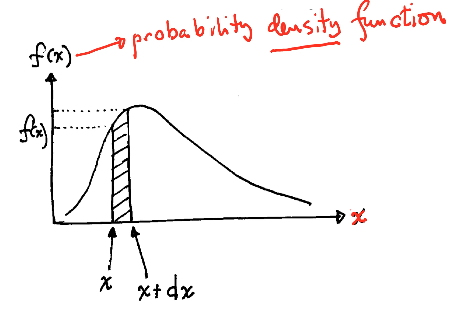 probability density function
f(x)
f(x)
x
x x+dx